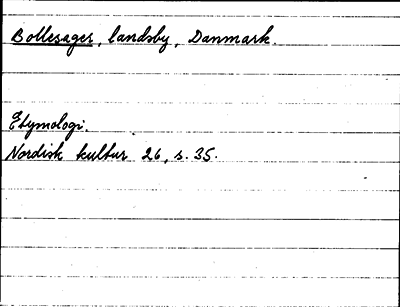 Bollesager, landsby, Danmark.
Etymologi.
Nordisk kultur 26, s. 35.